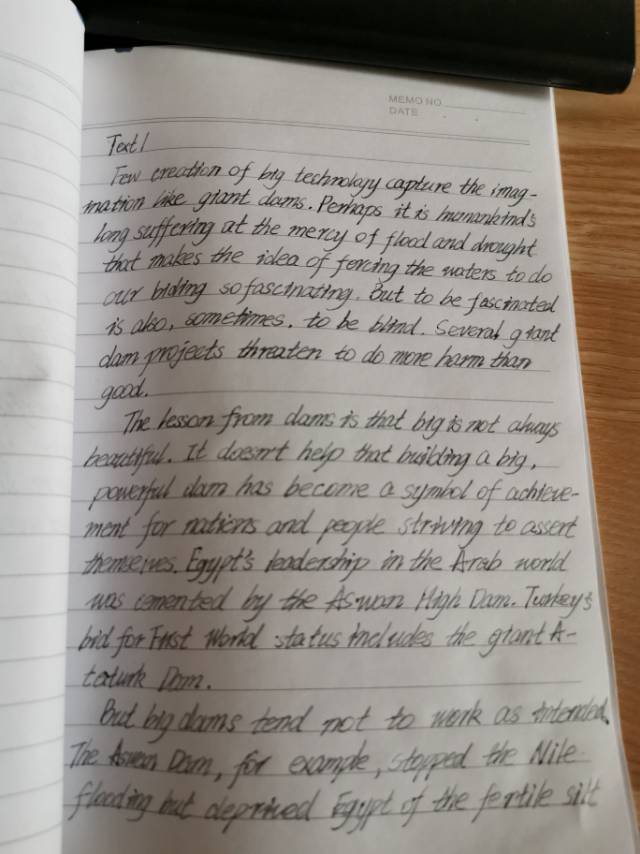 MEMO NO
DATE
Text 1
Few creation of big technology capture the imag-
ination like giant dams. Perhaps it is humankind's
long suffering at the mercy of flood and drought
that makes the idea of forcing the waters to do
our biding so fascinating. But to be fascinated
is also, sometimes, to be blind. Several giant
dam projects threaten to do more harm than
good.
The lesson from dams is that big is not always
beautiful. It doesn't help that building a big,
powerful dam has become a symbol of achieve-
ment for nations and people striving to assert
themselves. Egypt's leadership in the Arab world
was cemented by the Aswan High Dam. Turkey's
bid for First World status includes the giant A-
taturk Dam.
But big dams tend not to work as intended.
The Aswan Dam, for example, stopped the Nile
flooding but deprived Egypt of the fertile silt